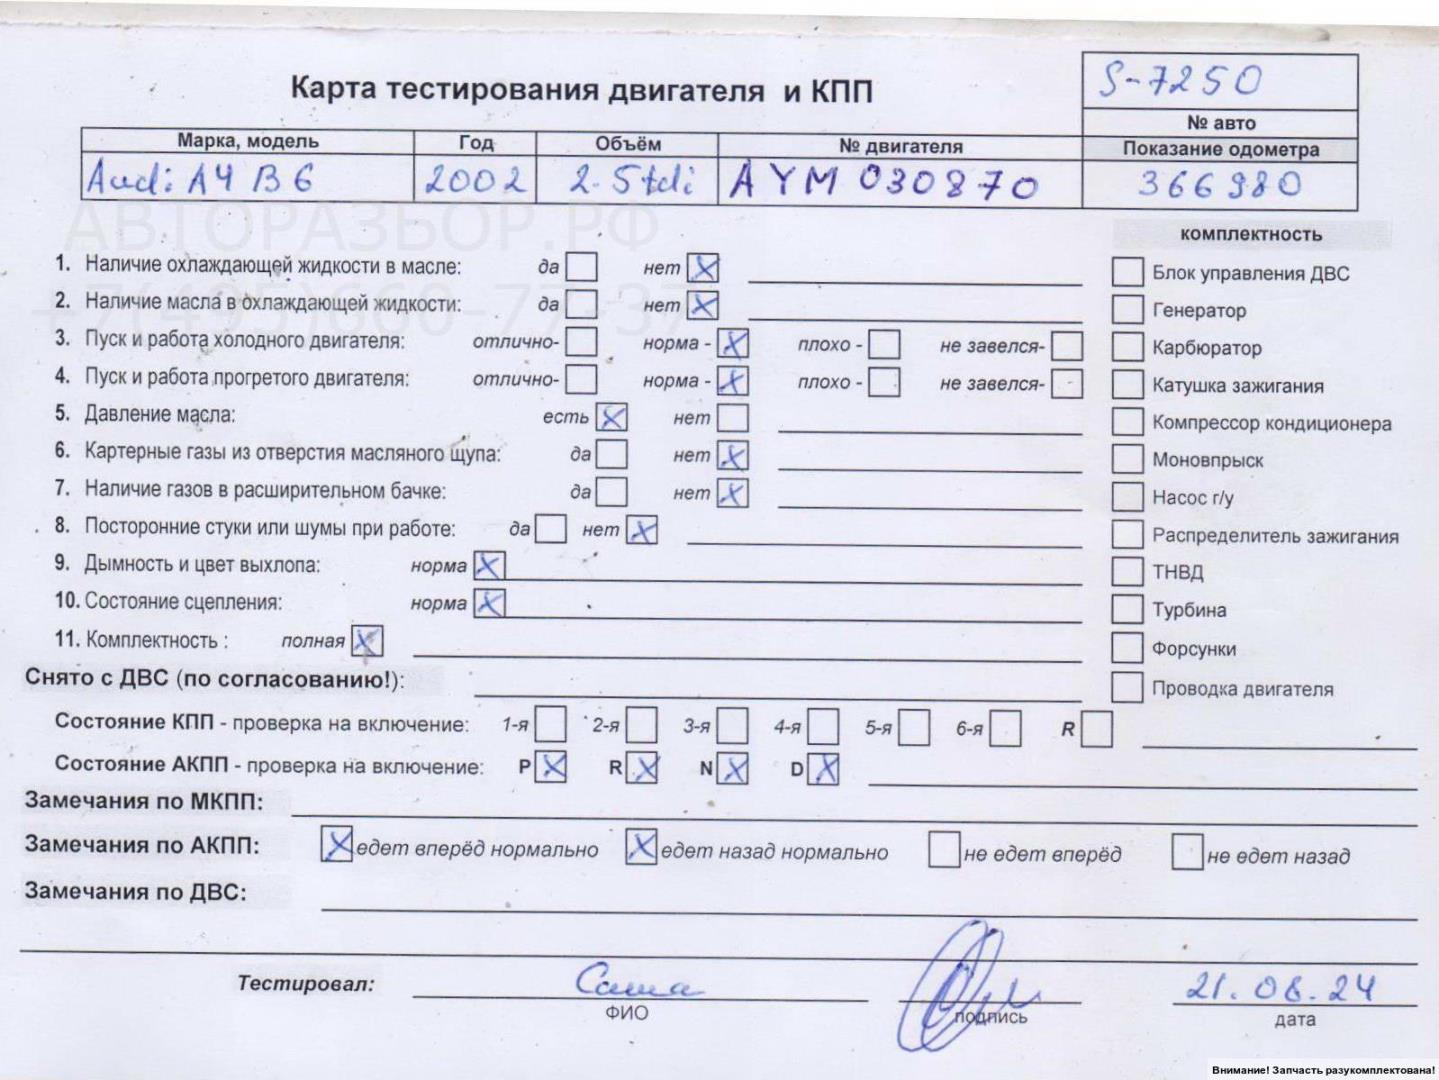 Карта тестирования двигателя и КПП
S-7250
№ авто
Марка, модель Год Объём № двигателя Показание одометра
Audi A4 B6 2002 2.5tdi AYM 030870 366980
АВТОРАЗБОР.РФ
+7(495)660-77-37
комплектность
1. Наличие охлаждающей жидкости в масле: да нет X
Блок управления ДВС
2. Наличие масла в охлаждающей жидкости: да нет X
Генератор
3. Пуск и работа холодного двигателя: отлично- норма - X плохо - не завелся-
Карбюратор
4. Пуск и работа прогретого двигателя: отлично- норма - X плохо - не завелся-
Катушка зажигания
5. Давление масла: есть X нет
Компрессор кондиционера
6. Картерные газы из отверстия масляного щупа: да нет X
Моновпрыск
7. Наличие газов в расширительном бачке: да нет X
Насос г/у
8. Посторонние стуки или шумы при работе: да нет X
Распределитель зажигания
9. Дымность и цвет выхлопа: норма X
ТНВД
10. Состояние сцепления: норма X
Турбина
11. Комплектность : полная X
Форсунки
Снято с ДВС (по согласованию!):
Проводка двигателя
Состояние КПП - проверка на включение: 1-я 2-я 3-я 4-я 5-я 6-я R
Состояние АКПП - проверка на включение: P X R X N X D X
Замечания по МКПП:
Замечания по АКПП: X едет вперёд нормально X едет назад нормально не едет вперёд не едет назад
Замечания по ДВС:
Тестировал: Саша 21.08.24
ФИО подпись дата
Внимание! Запчасть разукомплектована!